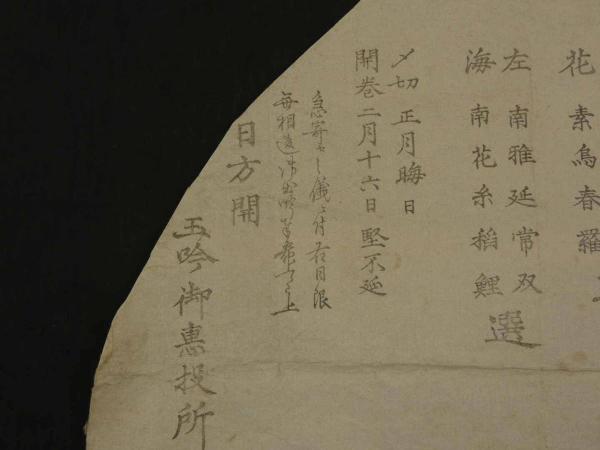 花 素烏春羅
左 南雅延常双
海 南花糸稲鯉
選
〆切 正月晦日
開巻二月十六日堅不延
急寄 儀ニ付右日限
無相違御出吟奉希 上
日方開
玉吟御恵投所